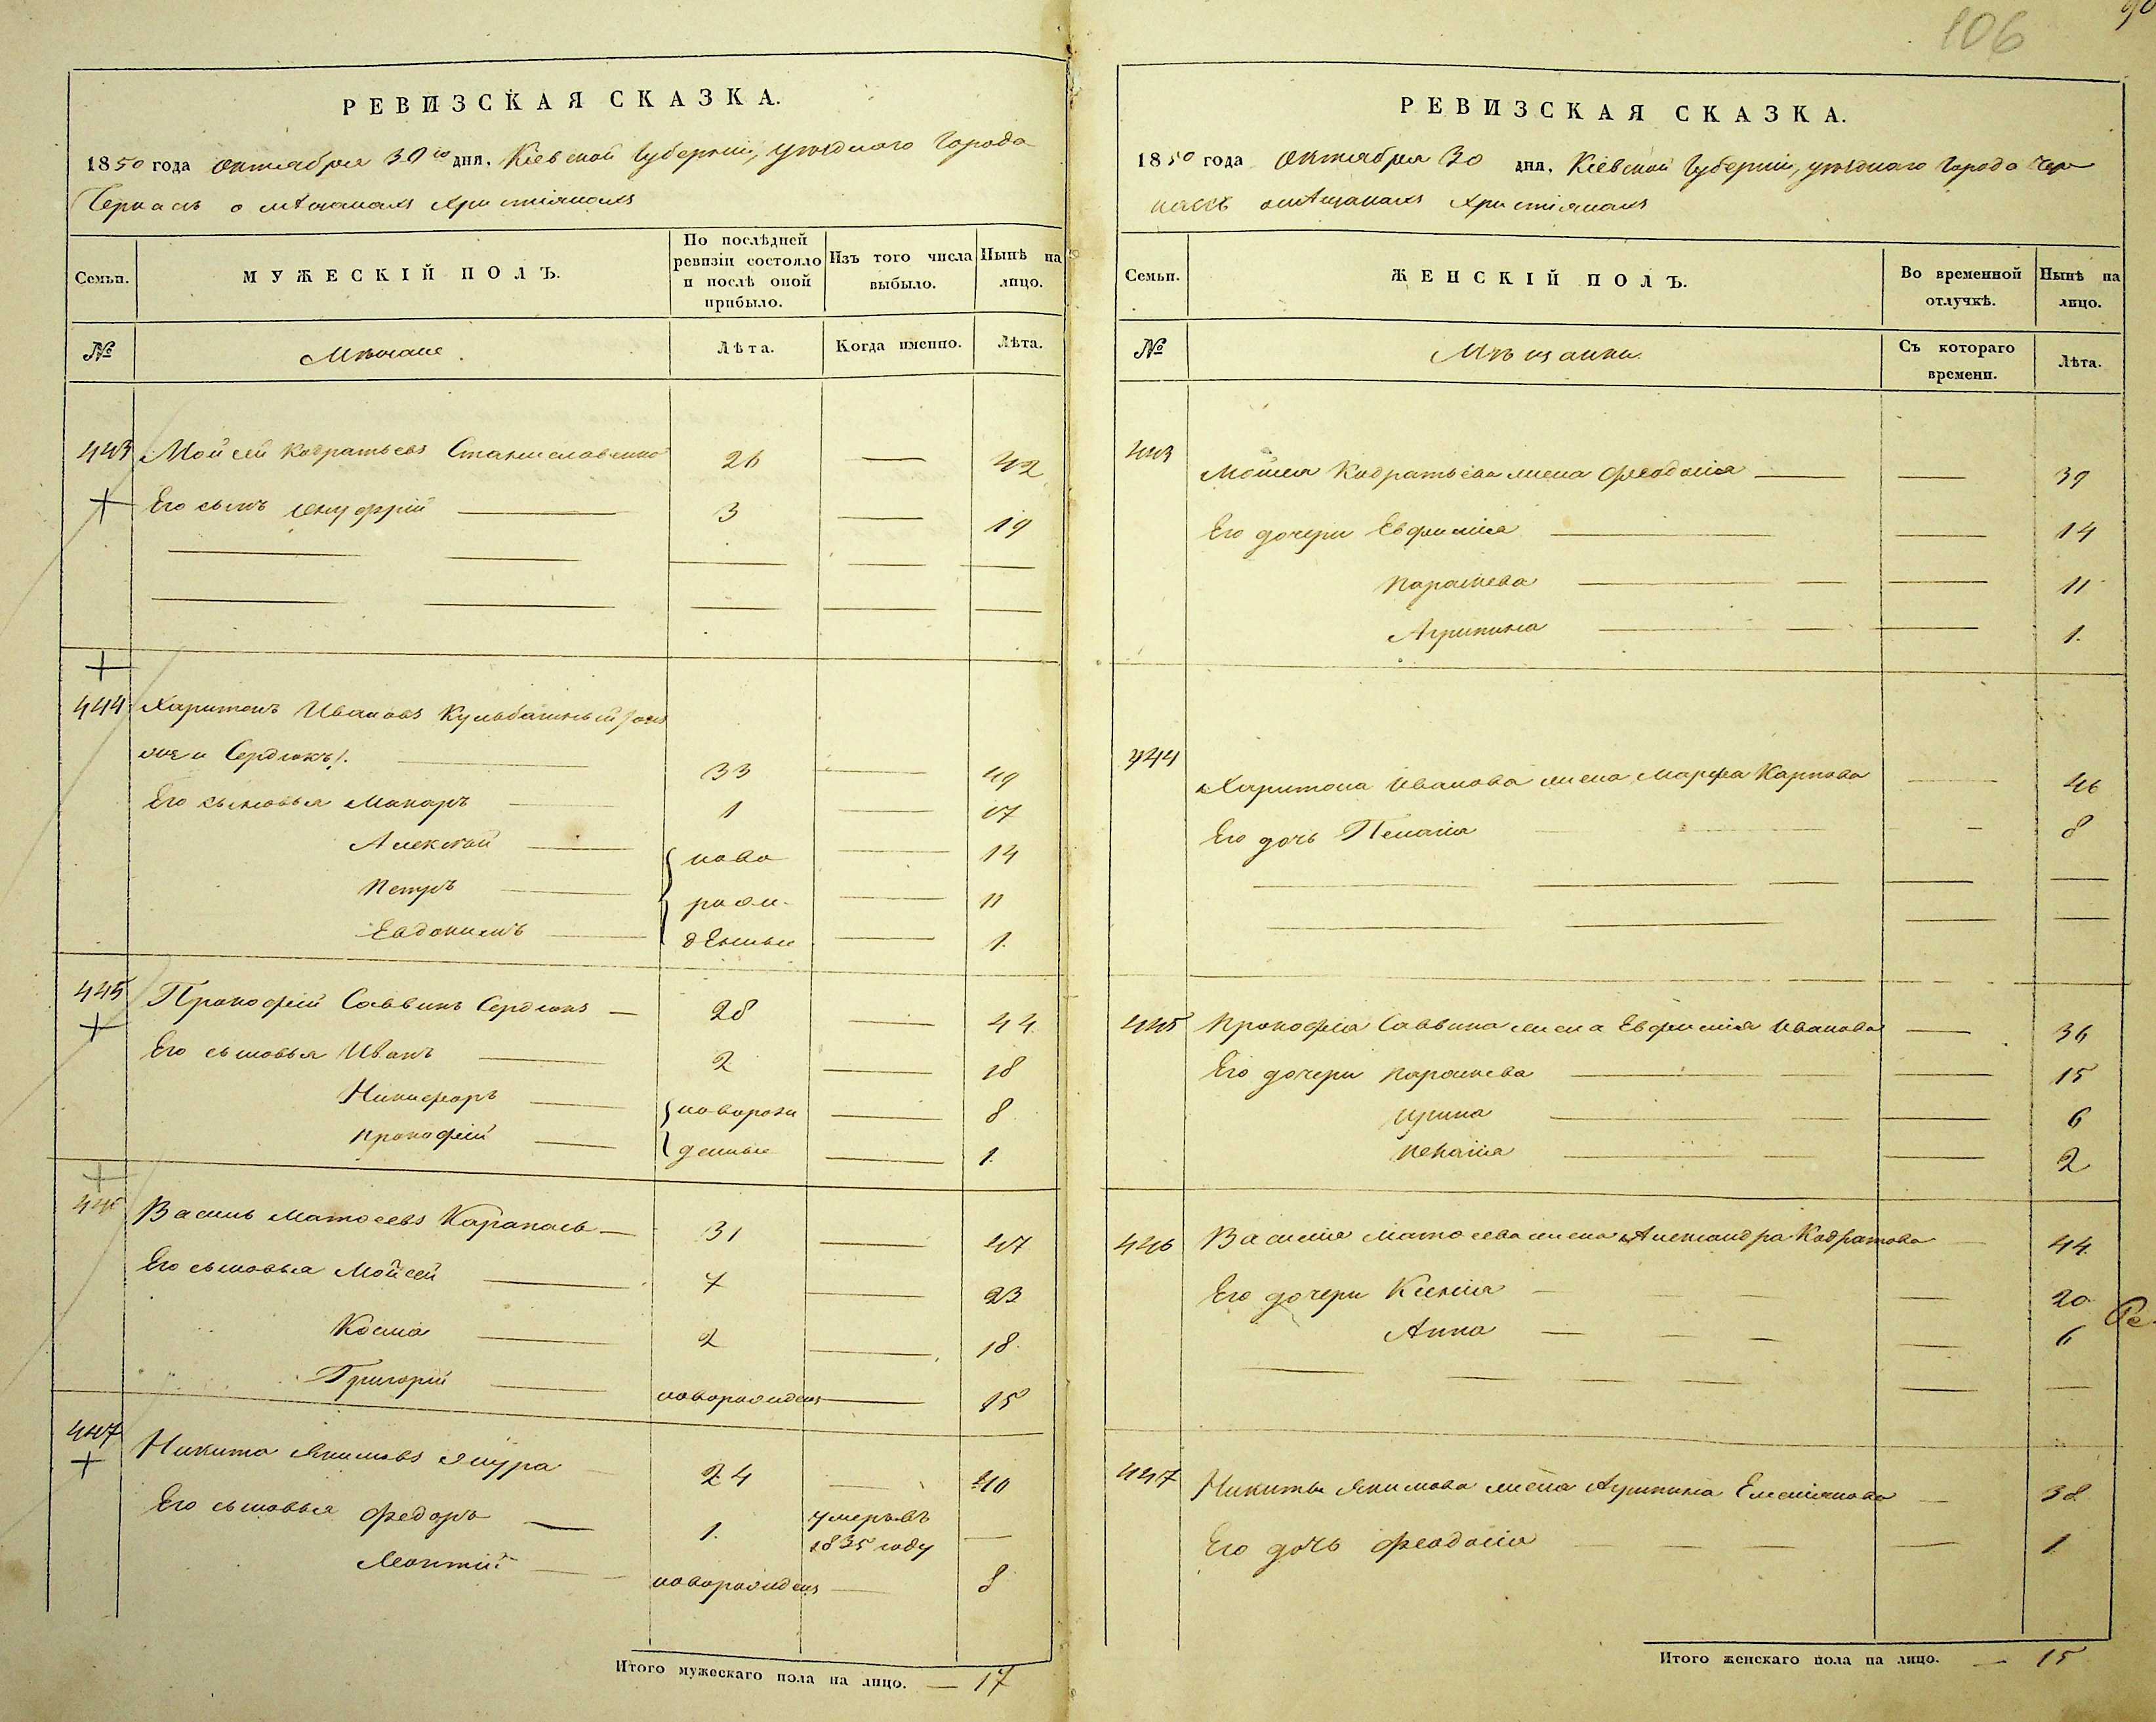 106
РЕВИЗСКАЯ СКАЗКА.
1850 года октября 30го дня. Кіевской Губерніи, уѣзднаго Города
Черкасъ о мѣщанахъ Христіянахъ
Семьи.
МУЖЕСКІЙ ПОЛЪ.
По послѣдней ревизіи состояло и послѣ оной прибыло.
Изъ того числа выбыло.
Нынѣ на лицо.
№
Мѣщане.
Лѣта.
Когда именно.
Лѣта.
443 Мойсей Кодратьевъ 26 — 42
Его сынъ Онуфрій — 3 — 19
444 Харитонъ Ивановъ Кульбашный
Сердюкъ). — 33 — 49
Его сыновья Макаръ — 1 — 17
Алексѣй — ново — 14
Петръ — рож- — 11
Евдокимъ — денные — 1.
445 Прокофій Саввинъ Сердюкъ — 28 — 44
Его сыновья Иванъ — 2 — 18
Никифоръ — новорож — 8
Прокофій — денные — 1.
446 Василь Матвеевъ — 31 — 47
Его сыновья Мойсей — 7 — 23
Косма — 2 — 18.
Григорій — новорожденъ — 15
447 Никита Якимовъ Ящура — 24 — 40
Его сыновья Федоръ — 1. умеръ въ 1835 году —
Леонтій — новорожденъ — 8
Итого мужескаго пола на лицо. — 17
РЕВИЗСКАЯ СКАЗКА.
1850 года октября 30 дня. Кіевской Губерніи, уѣзднаго Города Чер
касъ о мѣщанахъ Христіянахъ
Семьи.
ЖЕНСКІЙ ПОЛЪ.
Во временной отлучкѣ.
Нынѣ на лицо.
№
Мѣщанки
Съ котораго времени.
Лѣта.
443 Мойсея Кодратьева жена Феодосія — — 39
Его дочери Евфимія — — 14
Параскева — — 11
Агрипина — — 1.
444 Харитона Иванова жена Марфа Карпова — 46
Его дочь Пелагія — 8
445 Прокофія Саввина жена Евфимія Иванова — 36
Его дочери Параскева — — 15
Ирина — — 6
Пелагія — — 2
446 Василія Матвеева жена Александра Кодратова — 44
Его дочери Ксенія — — 20
Анна — — 6
447 Никиты Якимова жена Агрипина Емеліянова — 38
Его дочь Феодосія — — 1
Итого женскаго пола на лицо. — 15